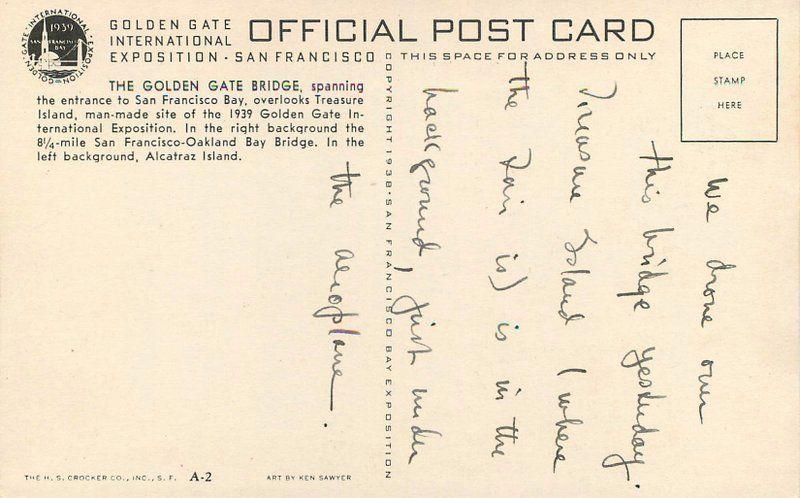 GOLDEN GATE · INTERNATIONAL · EXPOSITION
1939
SAN FRANCISCO BAY
GOLDEN GATE
INTERNATIONAL
EXPOSITION · SAN FRANCISCO
OFFICIAL POST CARD
THIS SPACE FOR ADDRESS ONLY
PLACE
STAMP
HERE
THE GOLDEN GATE BRIDGE, spanning
the entrance to San Francisco Bay, overlooks Treasure
Island, man-made site of the 1939 Golden Gate In-
ternational Exposition. In the right background the
8¼-mile San Francisco-Oakland Bay Bridge. In the
left background, Alcatraz Island.
COPYRIGHT 1938 · SAN FRANCISCO BAY EXPOSITION
We drove over
this bridge yesterday.
Treasure Island (where
the Fair is) is in the
background, just under
the aeroplane.
THE H. S. CROCKER CO., INC., S. F. A-2
ART BY KEN SAWYER